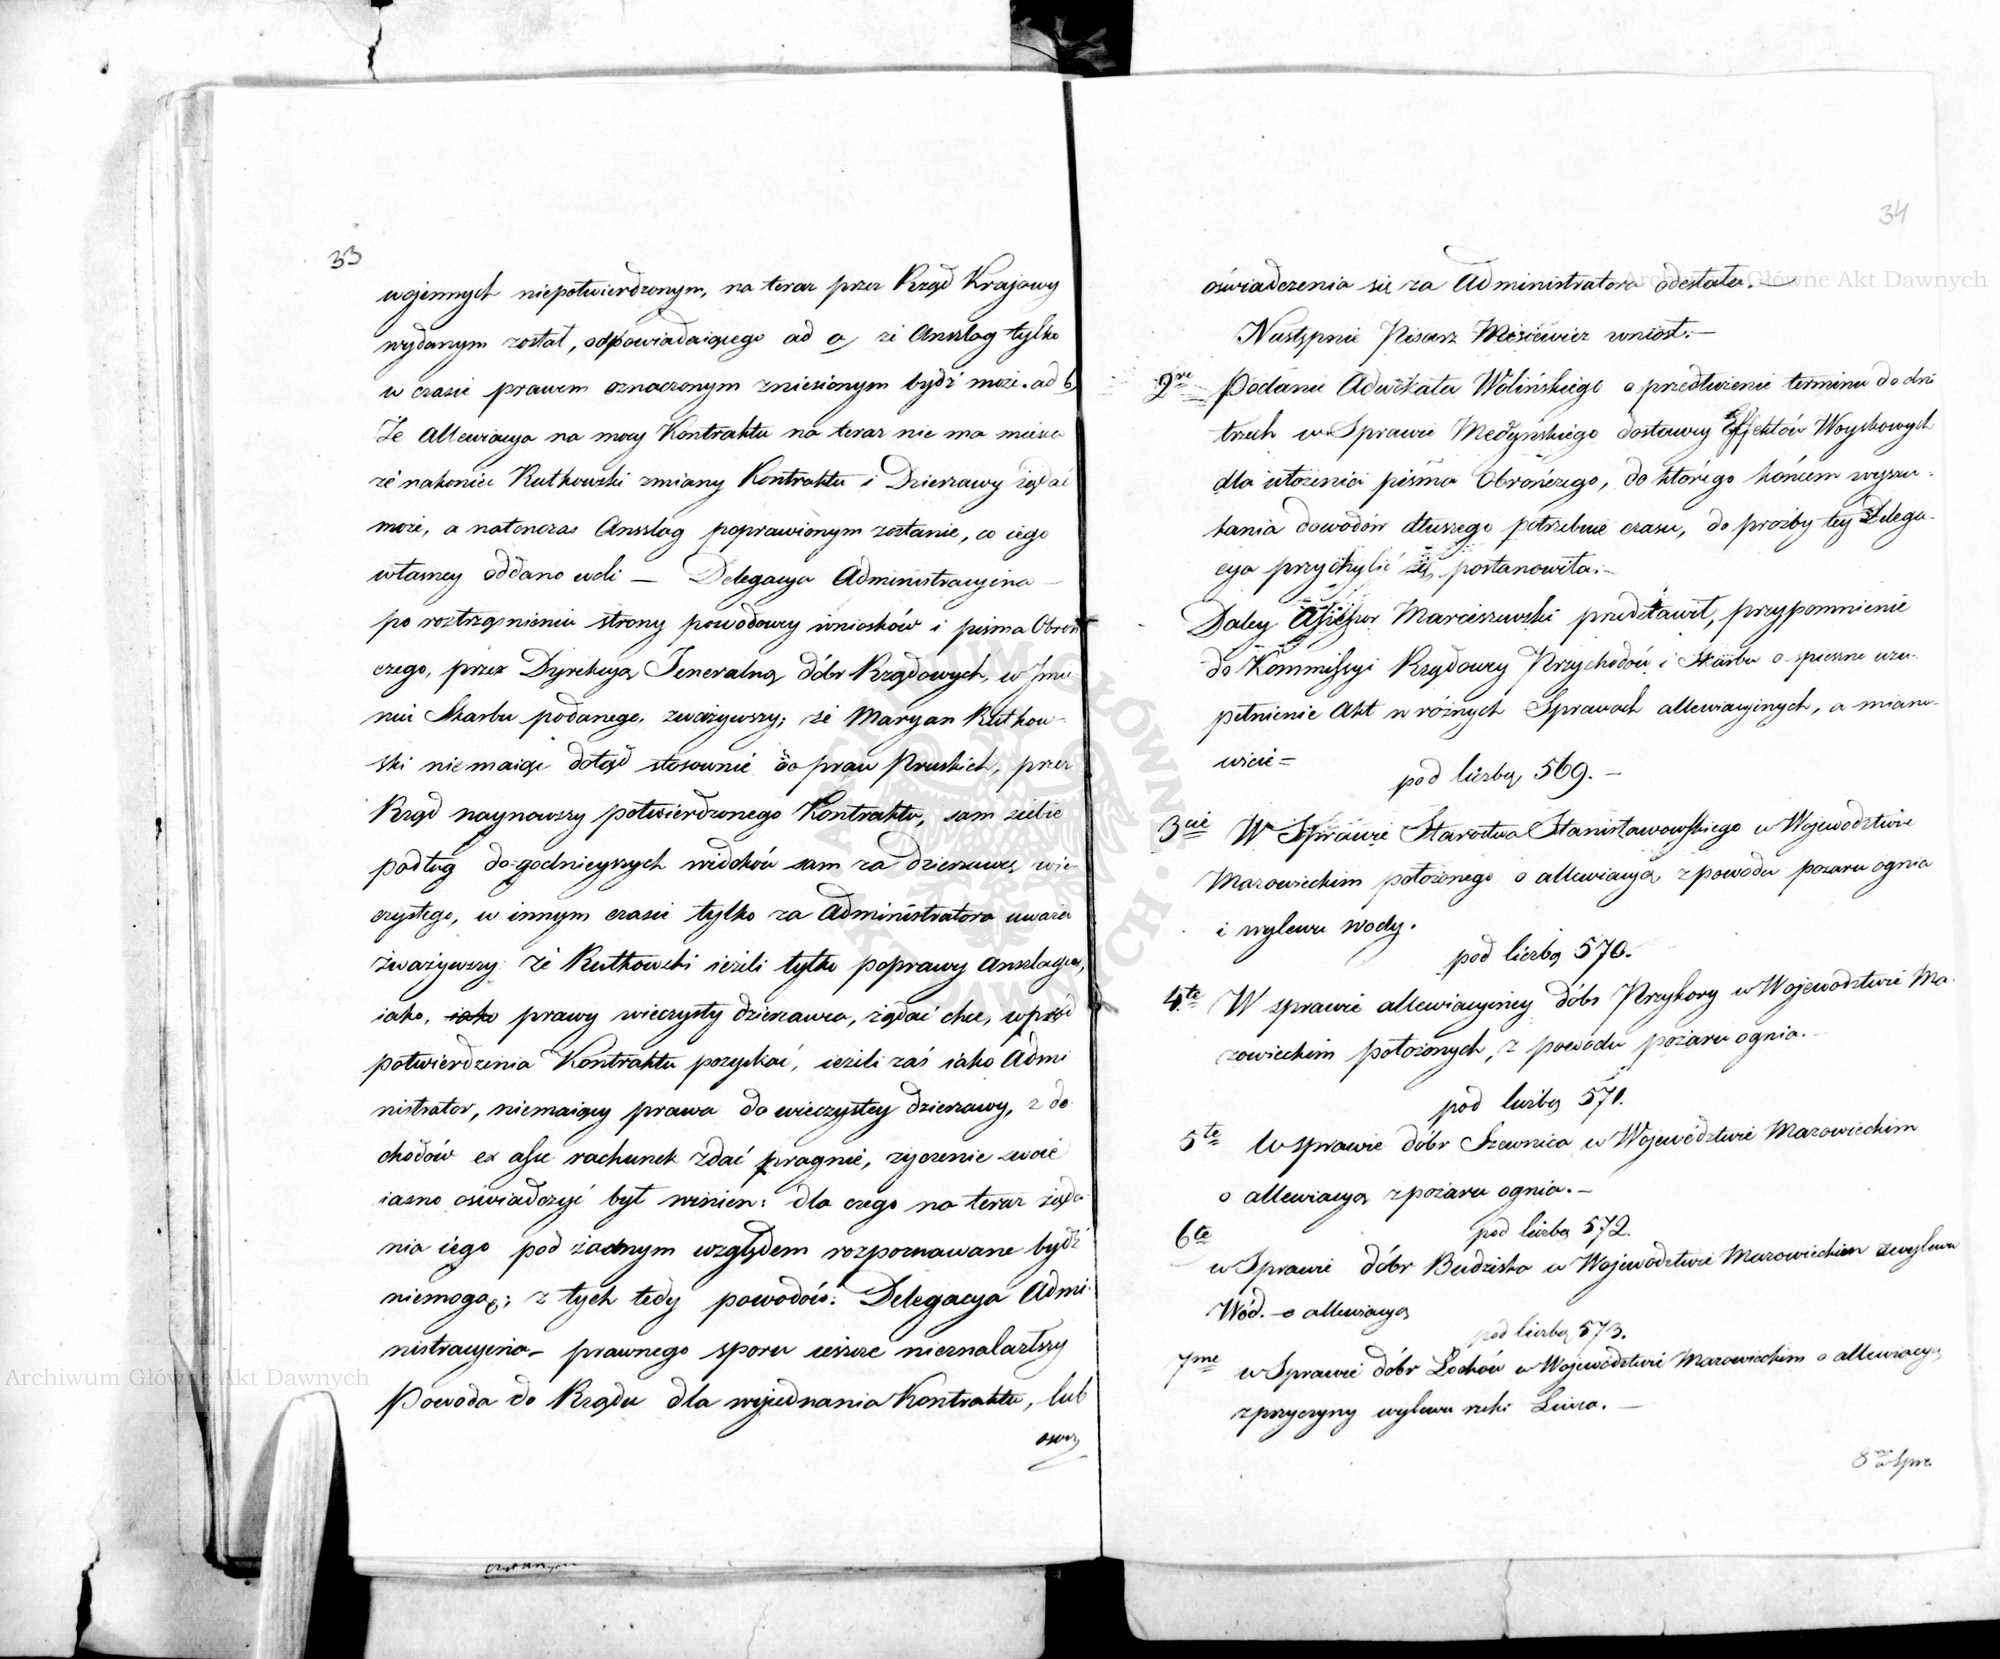 33
woiennych niepotwierdzonym, na teraz przez Rząd Krajowy
wydanym został, odpowiadaiącego ad a, że Anszlag tylko
w czasie prawem oznaczonym zniesionym bydź może. ad b,
Że allewiacya na mocy Kontraktu na teraz nie ma mieysca
że nakoniec Rutkowski zmiany Kontraktu i Dzierzawy żądać
może, a natenczas Anszlag poprawionym zostanie, co iego
własney oddano woli — Delegacya Administracyina —
po roztrząśnieniu strony powodowey wniosków i pisma Obroń
czego, przez Dyrekcyą Jeneralną dóbr Rządowych, w Imie
niu Skarbu podanego. zważywszy; że Maryan Rutkow-
ski niemaiąc dotąd stosownie do praw Pruskich, przez
Rząd naynowszy potwierdzonego Kontraktu, sam siebie
podług dogodnieyszych widoków sam za dzierzawcę wie-
czystego, w innym czasie tylko za Administratora uważa
zważywszy że Rutkowski ieżeli tylko poprawy Anszlagu,
iako, iako prawy wieczysty dzierzawca, żądać chce, wprzód
potwierdzenia Kontraktu pozyskać, ieżeli zaś iako Admi
nistrator, niemaiący prawa do wieczystey dzierzawy, z do
chodów ex asse rachunek zdać pragnie, życzenie swoie
iasno oświadczyć był winien: dla czego na teraz żąda
nia iego pod żadnym względem rozpoznawane bydź
niemogą; z tych tedy powodów: Delegacya Admi-
nistracyina – prawnego sporu ieszcze nieznalazłszy
Powoda do Rządu dla wyiednania Kontraktu, lub
34
oświadczenia się za Administratora odesłała. —
Następnie Pisarz Mosiewicz wniósł. —
2re Podanie Adwokata Wolińskiego o przedłużenie terminu do dni
trzech w Sprawie Medyńskiego dostawcy Effektów Woyskowych
dla ułożenia pisma Obrończego, do którego końcem wyszu-
kania dowodów dłuższego potrzebuie czasu, do prożby tey Delega-
cya przychylić się postanowiła. –
Daley Assessor Marciszewski przedstawił, przypomnienie
do Kommissyi Rządowey Przychodów i Skarbu o spieszne uzu-
pełnienie Akt w różnych Sprawach allewiacyinych, a miano-
wicie =
pod liczbą 569. –
3cie W Sprawie Starostwa Stanisławowskiego w Województwie
Mazowieckim położonego o allewiacyą z powodu pożaru ognia
i wylewu wody.
pod liczbą 570.
4te W sprawie allewiacyiney dóbr Przykory w Województwie Ma-
zowieckim położonych, z powodu pożaru ognia. –
pod liczbą 571.
5te W sprawie dóbr Szewnica w Województwie Mazowieckim
o allewiacyą z pożaru ognia. –
pod liczbą 572.
6te w Sprawie dóbr Budziska w Województwie Mazowieckim z wylewu
Wód. – o allewiacyą
pod liczbą 573.
7me w Sprawie dóbr Łochów w Województwie Mazowieckim o allewiacyą
z przyczyny wylewu rzeki Liwca. —
8me w Spra
Archiwum Główne Akt Dawnych
Archiwum Główne Akt Dawnych